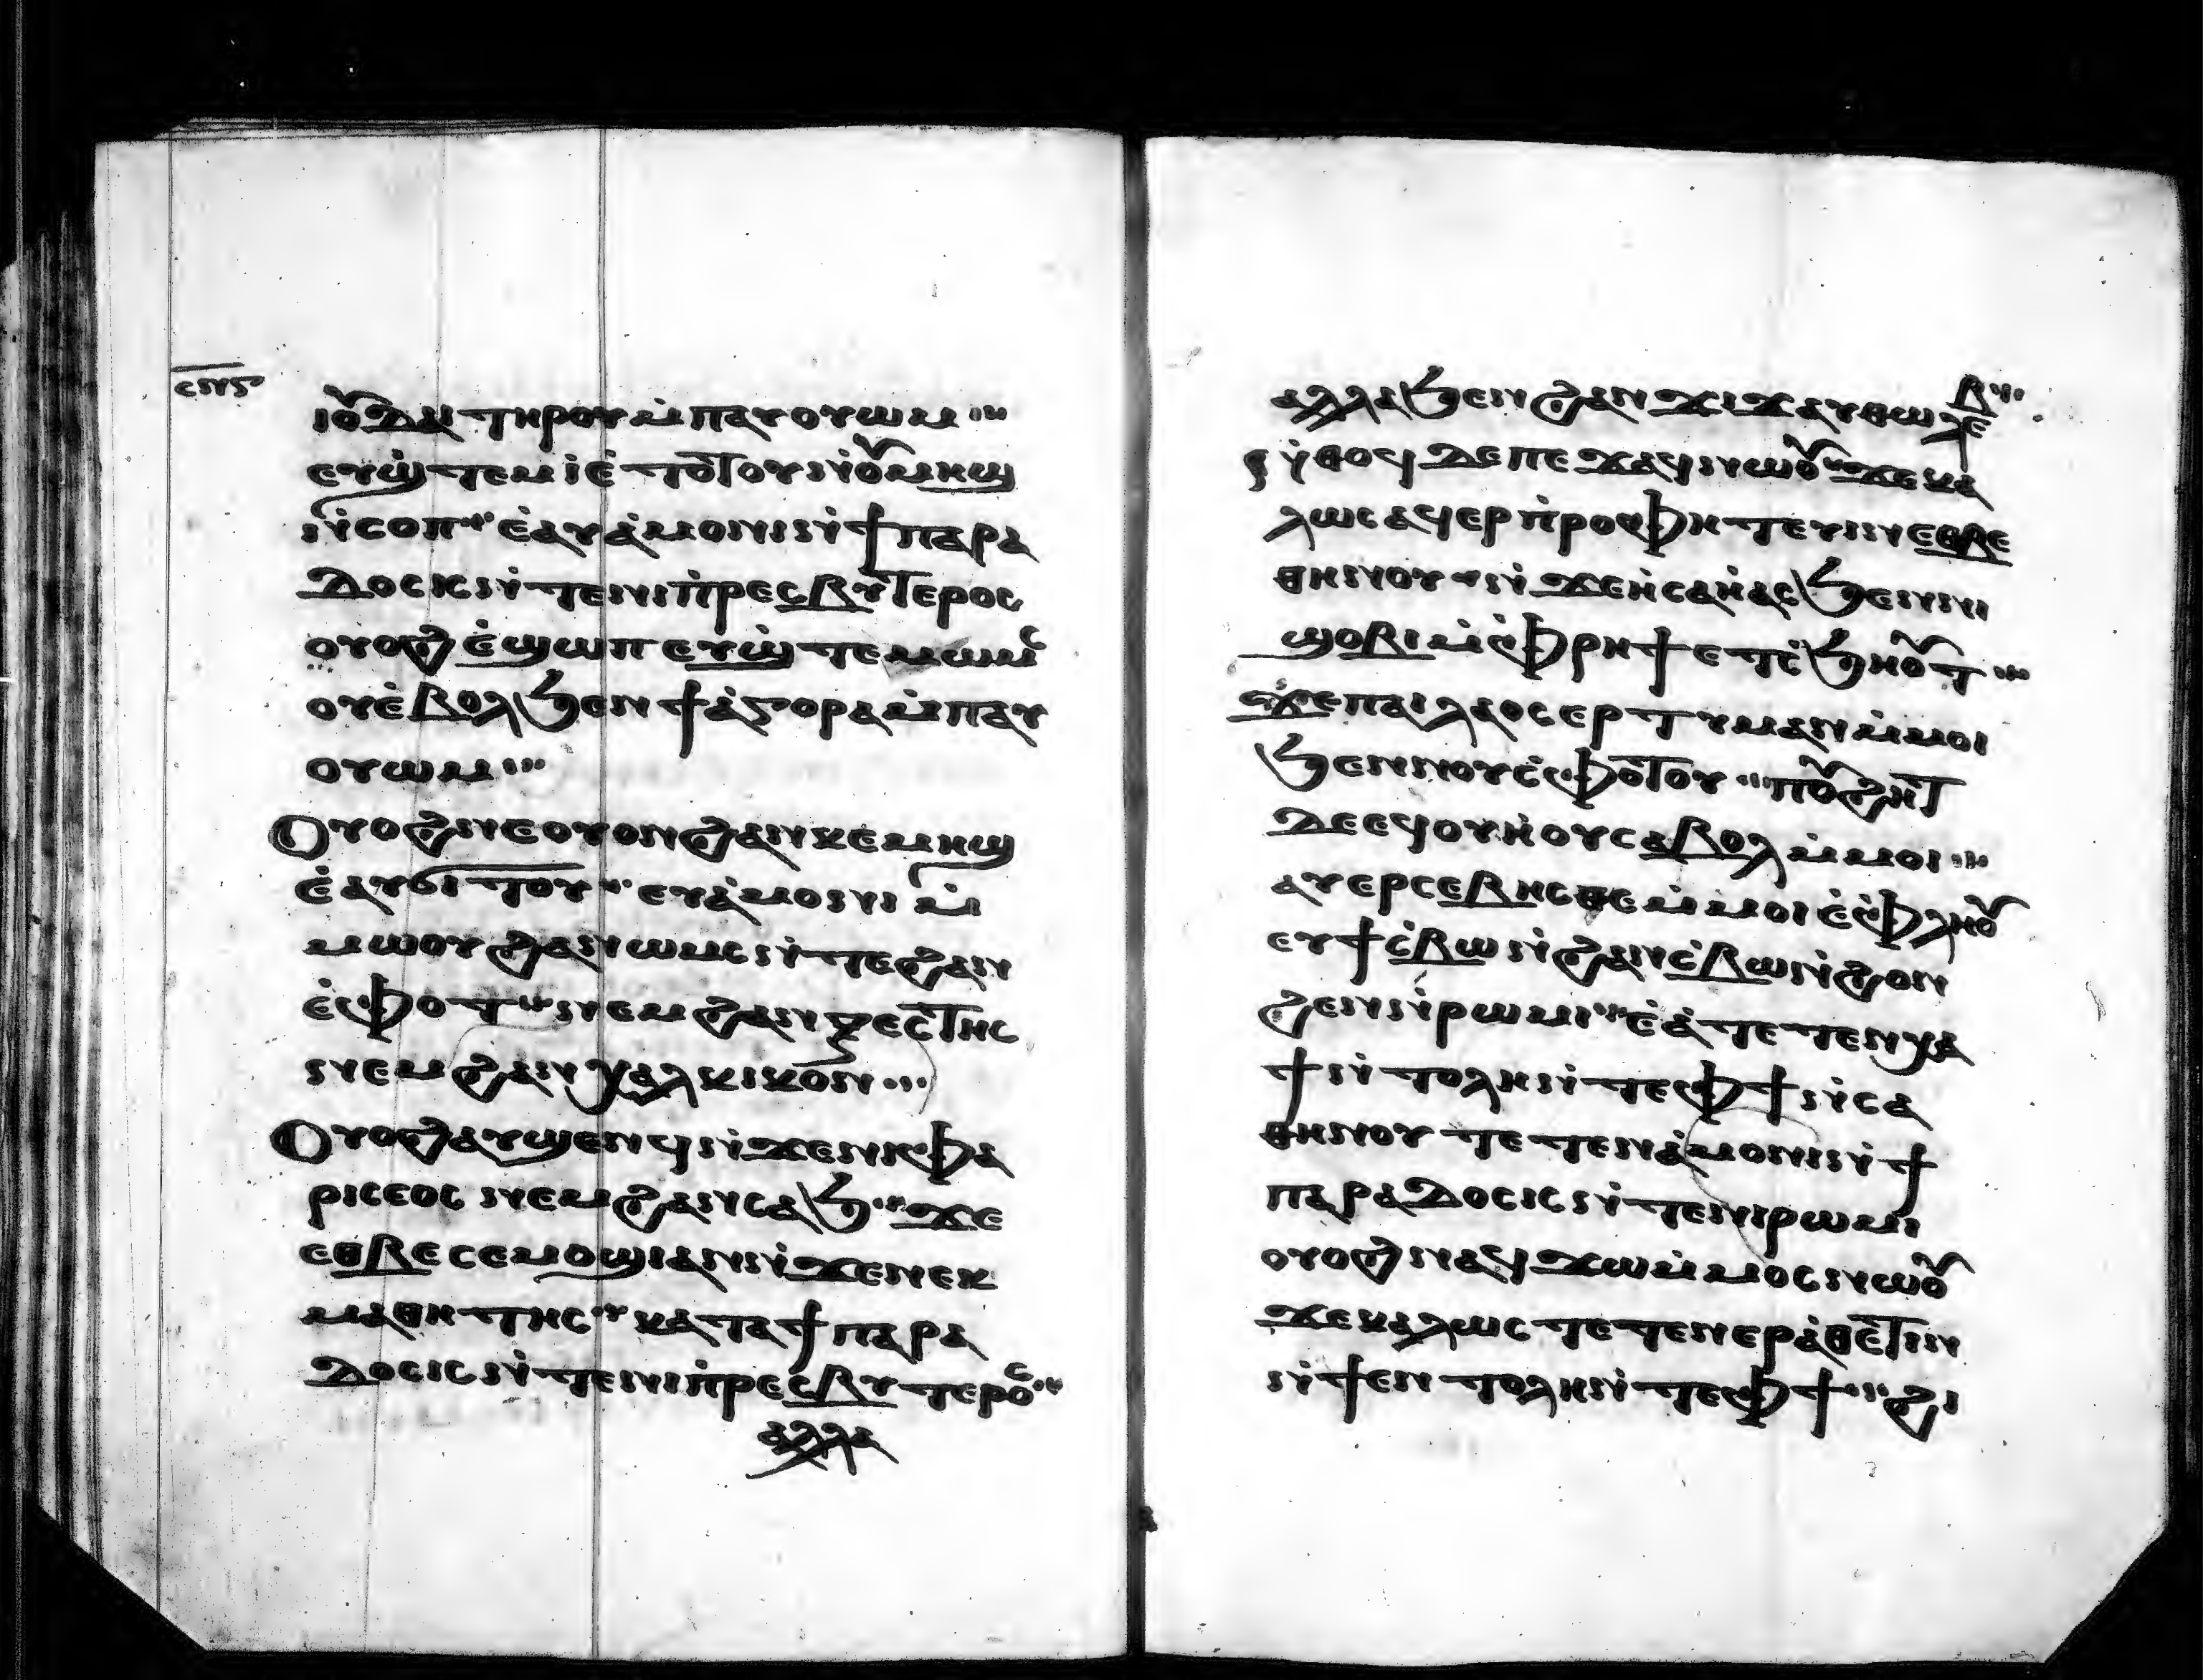 ⲥⲛⲋ
ⲓⲟⲩⲇⲁⲓ ⲧⲏⲣⲟⲩ ⲙ̀ⲡⲁⲩⲟⲩⲱⲙ
ⲉⲩϣ̀ⲧⲉⲙⲓⲉ̀ ⲧⲟⲧⲟⲩ ⲛ̀ⲟⲩⲙⲏϣ
ⲛ̀ⲥⲟⲡ ⲉ̀ⲁⲩⲁ̀ⲙⲟⲛⲓ ⲛ̀ϯⲡⲁⲣⲁ
ⲇⲟⲥⲓⲥ ⲛ̀ⲧⲉⲛⲓⲡ̀ⲣⲉⲥⲃⲩⲧⲉⲣⲟⲥ
ⲟⲩⲟϩ ⲉ̀ϣⲱⲡ ⲉⲩϣ̀ⲧⲉⲙⲱⲙⲥ
ⲟⲩⲉ̀ⲃⲟⲗϧⲉⲛ ϯⲁ̀ⲅⲟⲣⲁ ⲙ̀ⲡⲁⲩ
ⲟⲩⲱⲙ
Ⲟⲩⲟϩ ⲛⲉⲟⲩⲟⲛ ϩⲁⲛⲕⲉⲙⲏϣ
ⲉ̀ⲁⲩϭⲓⲧⲟⲩ ⲉⲩⲁ̀ⲙⲟⲛⲓ ⲙ̀
ⲙⲱⲟⲩ ϩⲁⲛⲱⲙⲥ ⲛ̀ⲧⲉϩⲁⲛ
ⲁ̀ⲫⲟⲧ ⲛⲉⲙϩⲁⲛⲝⲉⲥⲧⲏⲥ
ⲛⲉⲙϩⲁⲛⲭⲁⲗⲕⲓⲕⲟⲛ
Ⲟⲩⲟϩ ⲁⲩϣⲉⲛϥ ⲛ̀ϫⲉⲛⲓⲫⲁ
ⲣⲓⲥⲉⲟⲥ ⲛⲉⲙϩⲁⲛⲥⲁϧ ϫⲉ
ⲉⲑⲃⲉ ⲥⲉⲙⲟϣⲓ ⲁⲛ ⲛ̀ϫⲉⲛⲉⲕ
ⲙⲁⲑⲏⲧⲏⲥ ⲕⲁⲧⲁ ϯⲡⲁⲣⲁ
ⲇⲟⲥⲓⲥ ⲛ̀ⲧⲉⲛⲓⲡ̀ⲣⲉⲥⲃⲩⲧⲉⲣⲟⲥ
ⲁⲗⲗⲁ
ⲁⲗⲗⲁ ϧⲉⲛϩⲁⲛϫⲓϫ ⲁⲩⲑⲱⲗⲉⲃ
ⲛ̀ⲑⲟϥ ⲇⲉ ⲡⲉϫⲁϥ ⲛⲱⲟⲩ ϫⲉⲕⲁ
ⲗⲱⲥ ⲁϥⲉⲣⲡ̀ⲣⲟⲫⲏⲧⲉⲩⲓⲛ ⲉⲑⲃⲉ
ⲑⲏⲛⲟⲩ ⲛ̀ϫⲉⲏ̀ⲥⲁⲏ̀ⲁⲥ ϧⲉⲛⲛⲓ
ϣⲟⲃⲓ ⲙ̀ⲫⲣⲏϯ ⲉⲧⲥ̀ϧⲏⲟⲩⲧ
ϫⲉⲡⲁⲓⲗⲁⲟⲥ ⲉⲣⲧⲩⲙⲁⲛ ⲙ̀ⲙⲟⲓ
ϧⲉⲛⲛⲟⲩⲥ̀ⲫⲟⲧⲟⲩ ⲡⲟⲩϩⲏⲧ
ⲇⲉ ⲉϥⲟⲩⲏⲟⲩ ⲥⲁⲃⲟⲗ ⲙ̀ⲙⲟⲓ
ⲁⲩⲉⲣⲥⲉⲃⲏⲥⲑⲉ ⲙ̀ⲙⲟⲓ ⲉ̀ⲫⲗⲏⲟⲩ
ⲉⲩϯⲥ̀ⲃⲱ ⲛ̀ϩⲁⲛⲥ̀ⲃⲱ ⲛ̀ϩⲟⲛ
ϩⲉⲛ ⲛ̀ⲣⲱⲙⲓ ⲉ̀ⲁ̀ⲧⲉⲧⲉⲛⲭⲁ
ϯⲛ̀ⲧⲟⲗⲏ ⲛ̀ⲧⲉⲫϯ ⲛ̀ⲥⲁ
ⲑⲏⲛⲟⲩ ⲧⲉⲧⲉⲛⲁ̀ⲙⲟⲛⲓ ⲛ̀ϯ
ⲡⲁⲣⲁⲇⲟⲥⲓⲥ ⲛ̀ⲧⲉⲛⲓⲣⲱⲙⲓ
ⲟⲩⲟϩ ⲛⲁϥϫⲱ ⲙ̀ⲙⲟⲥ ⲛⲱⲟⲩ
ϫⲉⲕⲁⲗⲱⲥ ⲧⲉⲧⲉⲛⲉⲣⲁ̀ⲑⲉⲧⲓⲛ
ⲛ̀ϯⲉⲛⲧⲟⲗⲏ ⲛ̀ⲧⲉⲫϯ ϩⲓ